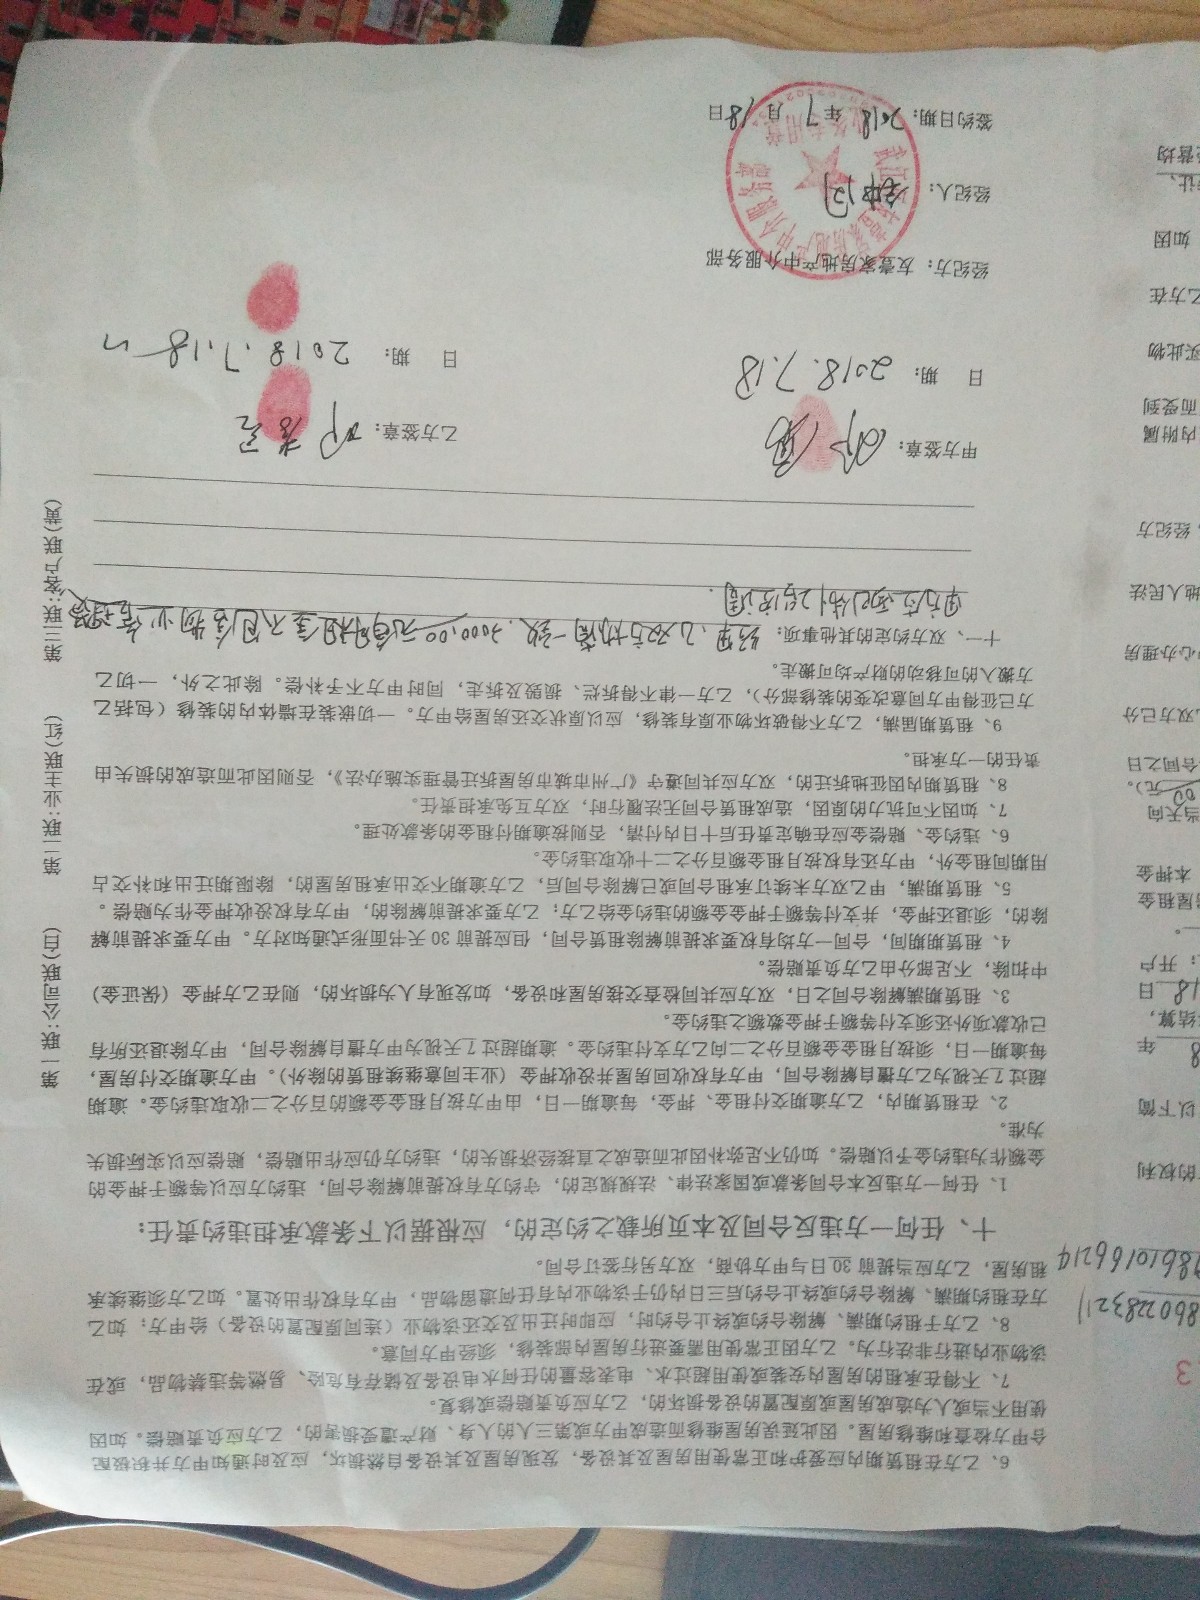 6、乙方在租赁期内应爱护和正常使用房屋及其设备，发现房屋及其设备自然损坏，应及时通知甲方并积极配
合甲方检查和维修房屋。因此延误房屋维修而造成甲方或第三人的人身、财产遭受损害的，乙方应负责赔偿。如因
使用不当或人为造成房屋或原配置的设备损坏的，乙方应负责赔偿或修复。
7、不得在承租的房屋内安装或使用超过水、电表容量的任何水电设备及储存有危险、易燃等违禁物品，或在
该物业内进行非法行为。乙方因正常使用需要进行房屋内部装修，须经甲方同意。
8、乙方于租约期满、解除合约或终止合约时，应即时迁出及交还该物业（连同原配置的设备）给甲方；如乙
方在租约期满、解除合约或终止合约后三日内仍于该物业内有任何遗留物品，甲方有权作出处置。如乙方须继续承
租房屋，乙方应当提前 30 日与甲方协商，双方另行签订合同。
十、任何一方违反合同及本页所载之约定的，应根据以下条款承担违约责任：
1、任何一方违反本合同条款或国家法律、法规规定的，守约方有权提前解除合同，违约方应以等额于押金的
金额作为违约金予以赔偿。如仍不足弥补因此而造成之直接经济损失的，违约方仍应作出赔偿，赔偿应以实际损失
为准。
2、在租赁期内，乙方逾期交付租金、押金，每逾期一日，由甲方按月租金金额的百分之二收取违约金。逾期
超过7天视为乙方擅自解除合同，甲方有权收回房屋并没收押金（业主同意继续租赁的除外）。甲方逾期交付房屋，
每逾期一日，须按月租金金额百分之二向乙方支付违约金。逾期超过7天视为甲方擅自解除合同，甲方除退还所有
已收款项外还须支付等额于押金数额之违约金。
3、租赁期满解除合同之日，双方应共同检查交接房屋和设备，如发现有人为损坏的，则在乙方押金（保证金）
中扣除，不足部分由乙方负责赔偿。
4、租赁期期间，合同一方均有权要求提前解除租赁合同，但应提前 30 天书面形式通知对方。甲方要求提前解
除的，须退还押金，并支付等额于押金金额的违约金给乙方；乙方要求提前解除的，甲方有权没收押金作为赔偿。
5、租赁期满，甲乙双方未续订承租合同或已解除合同后，乙方逾期不交出承租房屋的，除限期迁出和补交占
用期间租金外，甲方还有权按月租金额百分之二十收取违约金。
6、违约金、赔偿金应在确定责任后十日内付清，否则按逾期付租金的条款处理。
7、如因不可抗力的原因，造成租赁合同无法履行时，双方互免承担责任。
8、租赁期内因征地拆迁的，双方应共同遵守《广州市城市房屋拆迁管理实施办法》，否则因此而造成的损失由
责任的一方承担。
9、租赁期届满，乙方不得破坏物业原有装修，应以原状交还房屋给甲方。一切嵌装在墙体内的装修（包括乙
方已征得甲方同意改变的装修部分），乙方一律不得拆烂、损毁及拆走，同时甲方不予补偿。除此之外，一切乙
方搬入的可移动的财产均可搬走。
十一、双方约定的其他事项：经甲、乙双方协商一致，3000.00元每月租金不包含物业管理
甲方签章：
日 期：2018.7.18
乙方签章：
日 期：2018.7.18
经纪方：友壹家房地产中介服务部
经纪人：
签约日期：2018年7月18日
第一联:公司联(白) 第二联:业主联(红) 第三联:客户联(黄)